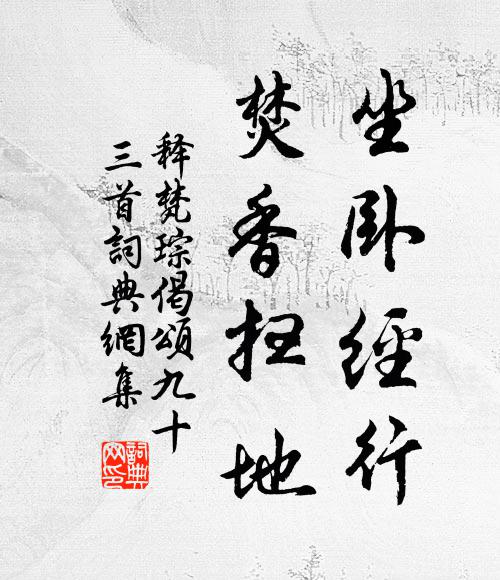 坐卧經行
焚香扫地
释梵琮偈頌九十
三首詞典網集
詞典網印